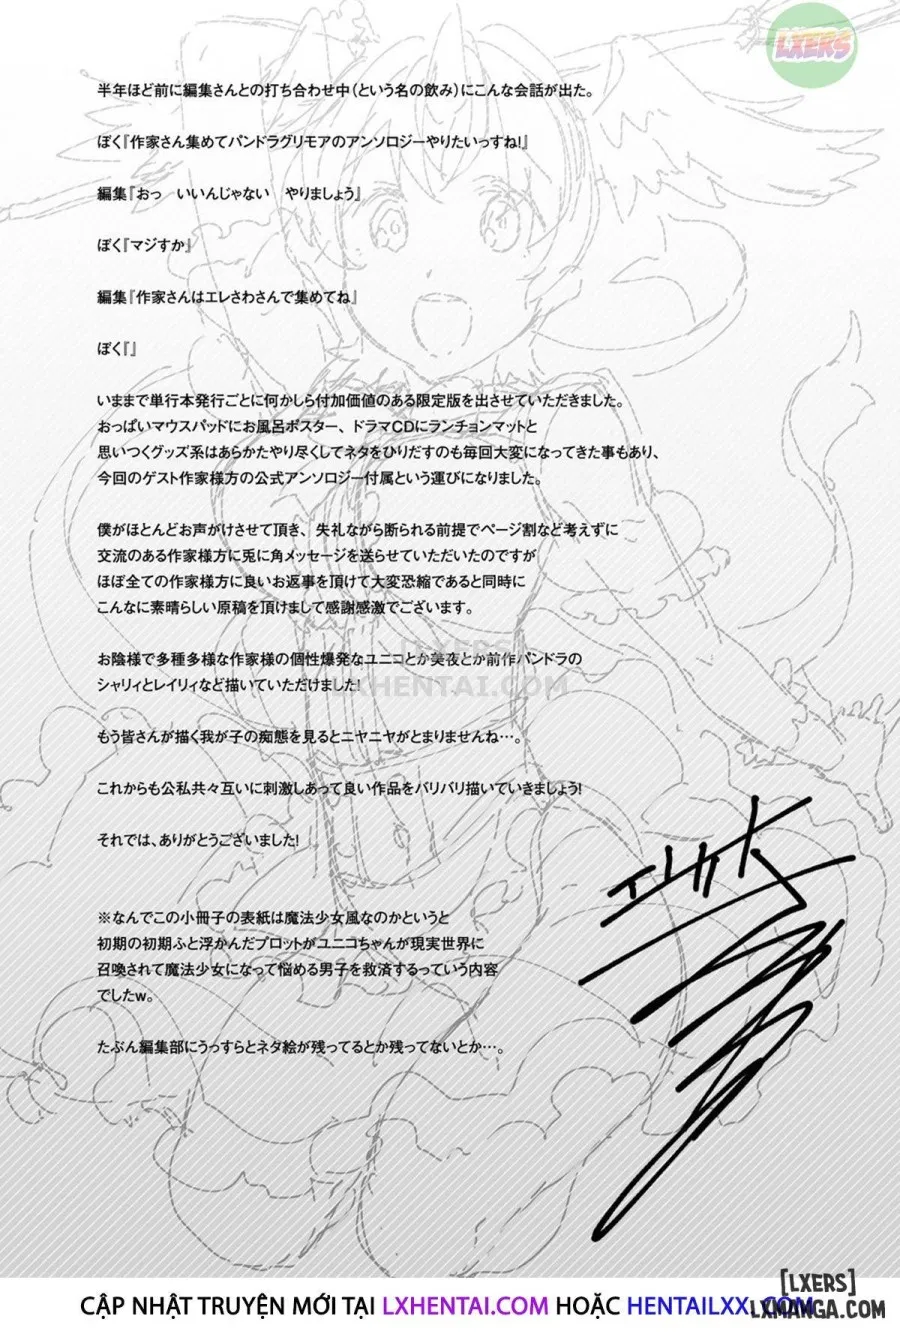 LXERS
半年ほど前に編集さんとの打ち合わせ中(という名の飲み)にこんな会話が出た。
ぼく『作家さん集めてパンドラグリモアのアンソロジーやりたいっすね!』
編集『おっ　いいんじゃない　やりましょう』
ぼく『マジすか』
編集『作家さんはエレさわさんで集めてね』
ぼく『』
いままで単行本発行ごとに何かしら付加価値のある限定版を出させていただきました。
おっぱいマウスパッドにお風呂ポスター、ドラマCDにランチョンマットと
思いつくグッズ系はあらかたやり尽くしてネタをひりだすのも毎回大変になってきた事もあり、
今回のゲスト作家様方の公式アンソロジー付属という運びになりました。
僕がほとんどお声がけさせて頂き、失礼ながら断られる前提でページ割など考えずに
交流のある作家様方に兎に角メッセージを送らせていただいたのですが
ほぼ全ての作家様方に良いお返事を頂けて大変恐縮であると同時に
こんなに素晴らしい原稿を頂けまして感謝感激でございます。
お陰様で多種多様な作家様の個性爆発なユニコとか美夜とか前作パンドラの
シャリィとレイリィなど描いていただけました!
もう皆さんが描く我が子の痴態を見るとニヤニヤがとまりませんね…。
これからも公私共々互いに刺激しあって良い作品をバリバリ描いていきましょう!
それでは、ありがとうございました!
※なんでこの小冊子の表紙は魔法少女風なのかというと
初期の初期ふと浮かんだプロットがユニコちゃんが現実世界に
召喚されて魔法少女になって悩める男子を救済するっていう内容
でしたw。
たぶん編集部にうっすらとネタ絵が残ってるとか残ってないとか…。
LXERS
LXHENTAI.COM
[LXERS]
CẬP NHẬT TRUYỆN MỚI TẠI LXHENTAI.COM HOẶC HENTAILXX.COM
LXMANGA.COM